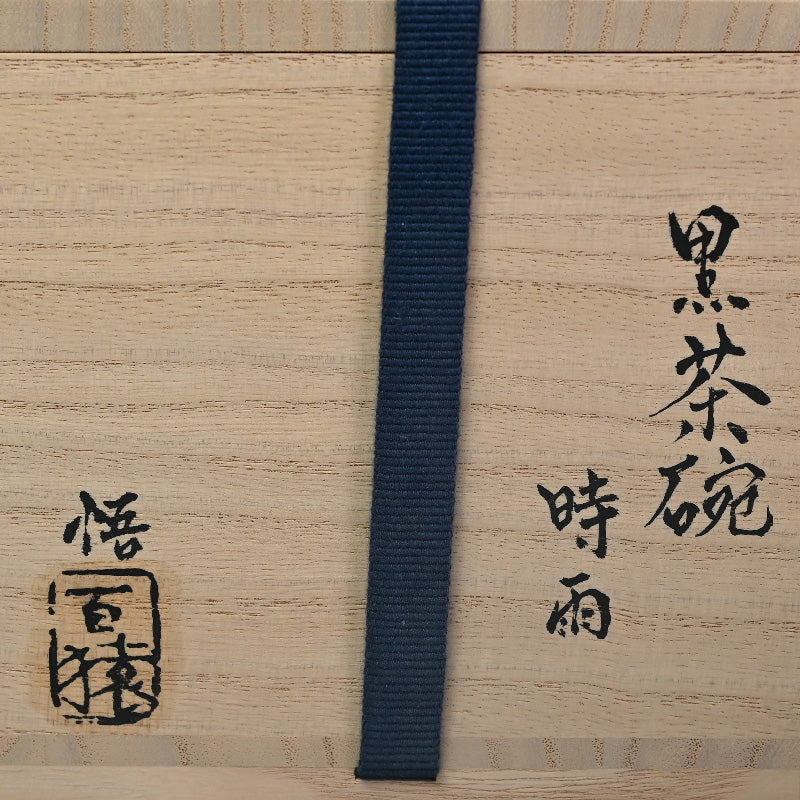 黒茶碗
時雨
悟
百猿